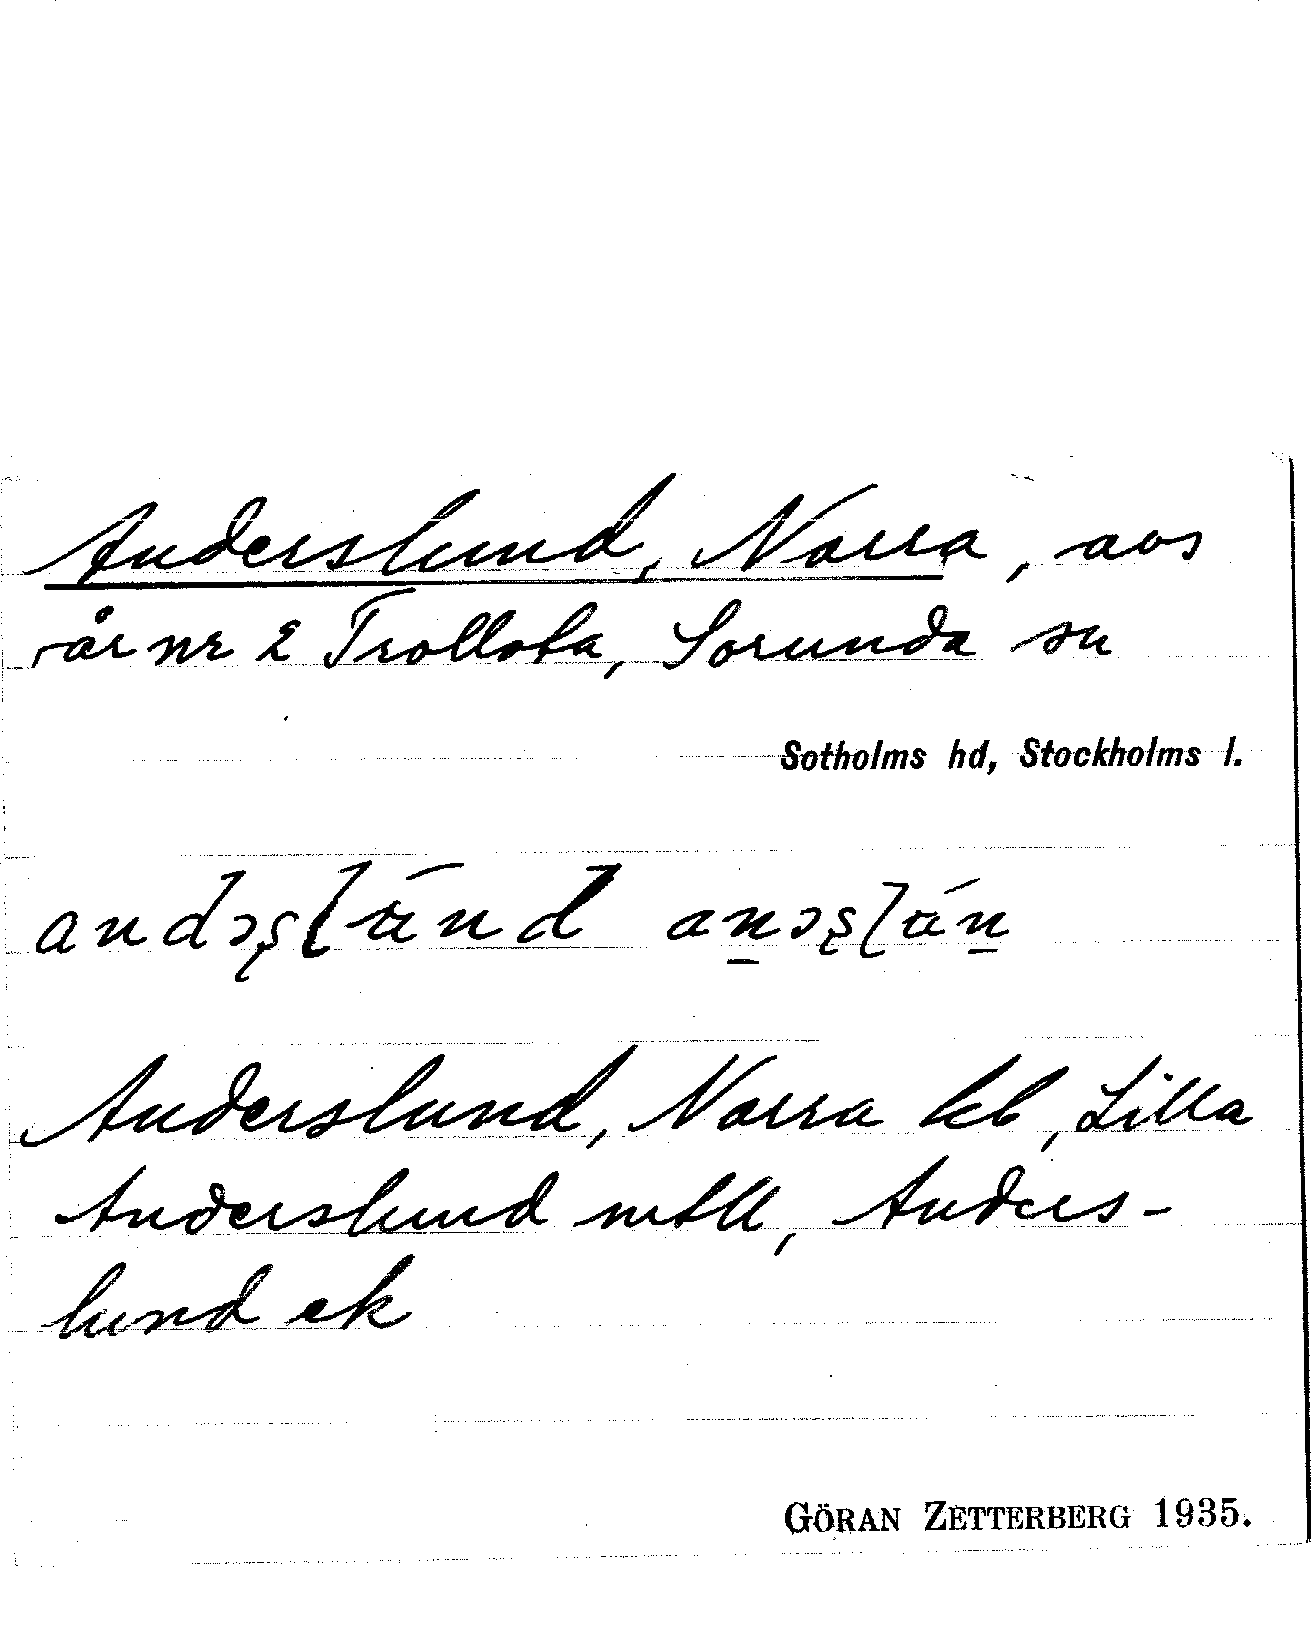 Anderslund, Norra, avs
från nr 2 Trollsta, Sorunda sn
Sotholms hd, Stockholms l.
Anderslund, Norra kb, Lilla
Anderslund mtll, Anders-
lund ek
GÖRAN ZETTERBERG 1935.